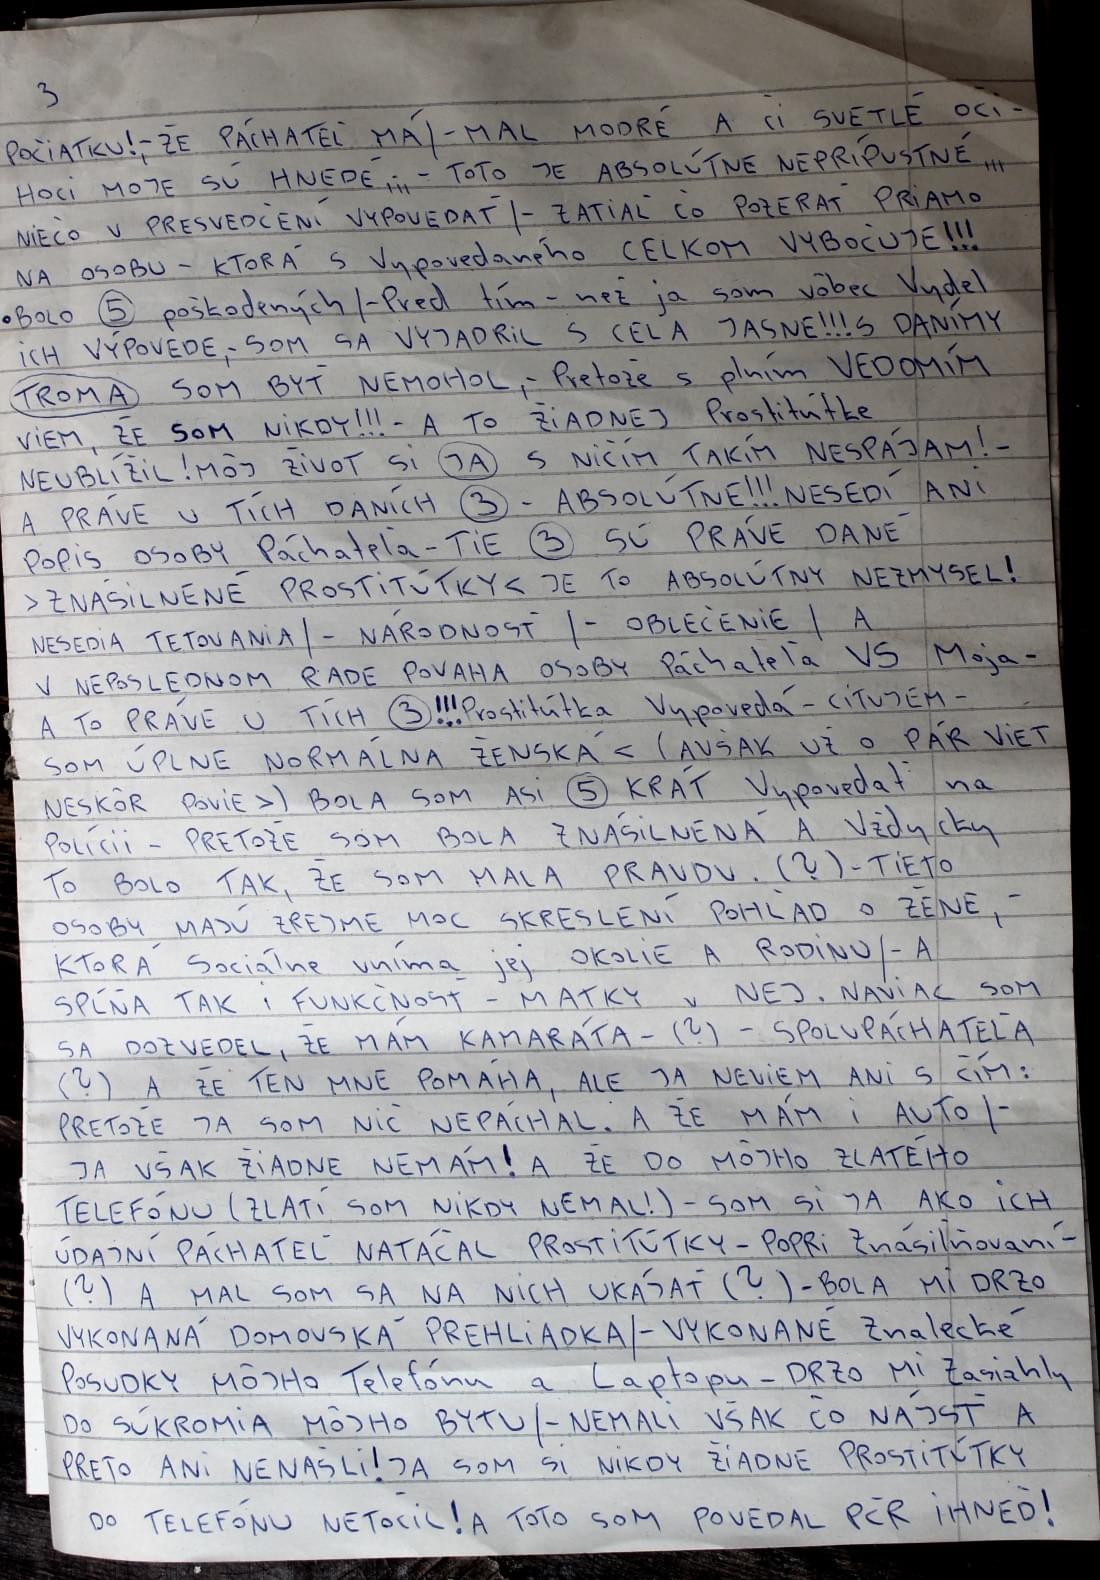 3
POČIATKU!,-ŽE PÁCHATEĽ MÁ/-MAL MODRÉ A ČI SVETLÉ OČI-
HOCI MOJE SÚ HNEDÉ,,,- TOTO JE ABSOLÚTNE NEPRÍPUSTNÉ,,,
NIEČO V PRESVEDČENÍ VYPOVEDAŤ/- ZATIAĽ ČO POZERAŤ PRIAMO
NA OSOBU - KTORÁ S Vypovedaného CELKOM VYBOČUJE!!!
•BOLO 5 poškodených/-Pred tím - než ja som vôbec Vydel
ICH VÝPOVEDE,-SOM SA VYJADRIL S CELA JASNE!!!S DANÍMY
TROMA SOM BYŤ NEMOHOL,- Pretože s plním VEDOMÍM
VIEM, ŽE SOM NIKDY!!!- A TO ŽIADNEJ Prostitútke
NEUBLÍŽIL!MÔJ ŽIVOT SI JA S NIČÍM TAKÍM NESPÁJAM!-
A PRÁVE U TÍCH DANÍCH 3 - ABSOLÚTNE!!!NESEDÍ ANI
POPIS OSOBY Páchateľa-TIE 3 SÚ PRÁVE DANÉ
>ZNÁSILNENÉ PROSTITÚTKY< JE TO ABSOLÚTNY NEZMYSEL!
NESEDIA TETOVANIA/- NÁRODNOSŤ /- OBLEČENIE / A
V NEPOSLEDNOM RADE POVAHA OSOBY Páchateľa VS Moja-
A TO PRÁVE U TÍCH 3!!!Prostitútka Vypovedá - CITUJEM-
SOM ÚPLNE NORMÁLNA ŽENSKÁ < (AVŠAK UŽ O PÁR VIET
NESKÔR POVIE>) BOLA SOM ASI 5 KRÁT Vypovedať na
POLÍCII - PRETOŽE SOM BOLA ZNÁSILNENÁ A Vždycky
TO BOLO TAK, ŽE SOM MALA PRAVDU. (?)-TIETO
OSOBY MAJÚ ZREJME MOC SKRESLENÍ POHĽAD O ŽENE,-
KTORÁ Sociálne vníma jej OKOLIE A RODINU/- A
SPĹŇA TAK I FUNKČNOSŤ - MATKY V NEJ. NAVIAC SOM
SA DOZVEDEL, ŽE MÁM KAMARÁTA-(?) - SPOLUPÁCHATEĽA
(?) A ŽE TEN MNE POMÁHA, ALE JA NEVIEM ANI S ČÍM:
PRETOŽE JA SOM NIČ NEPÁCHAL. A ŽE MÁM I AUTO/-
JA VŠAK ŽIADNE NEMÁM! A ŽE DO MÔJHO ZLATÉHO
TELEFÓNU (ZLATÍ SOM NIKDY NEMAL!)-SOM SI JA AKO ICH
ÚDAJNÍ PÁCHATEĽ NATÁČAL PROSTITÚTKY-POPRI Znásilňovaní-
(?) A MAL SOM SA NA NICH UKÁJAŤ (?)-BOLA MI DRZO
VYKONANÁ DOMOVSKÁ PREHLIADKA/-VYKONANÉ Znalecké
POSUDKY MÔJHO Telefónu a Laptopu - DRZO MI Zasiahly
DO SÚKROMIA MÔJHO BYTU/-NEMALI VŠAK ČO NÁJSŤ A
PRETO ANI NENAŠLI!JA SOM SI NIKDY ŽIADNE PROSTITÚTKY
DO TELEFÓNU NETOČIL!A TOTO SOM POVEDAL PČR IHNEĎ!